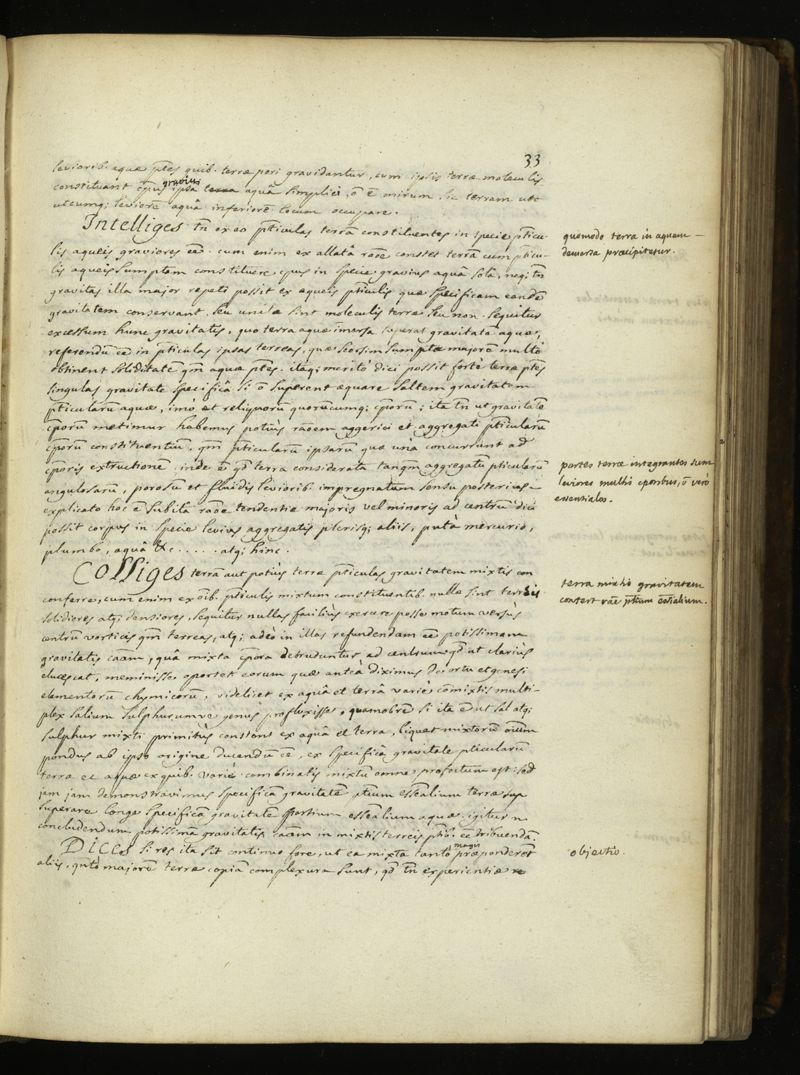 33
leviorib. aquæ ptes quib. terræ pori gravidantur, cum ipsis terræ moleculis
constituant cpus gravius ipsa aquâ simplici, ō ē mirum su terram utc
utcumq; leviorē aquâ inferiorē locum occupare.
Intelliges tn̄ ex eo pticulas terrā constituentes in specie pticu-
lis aqueis graviores eē. cum enim ex allatâ raōe constet terrā cum pticu-
lis aqueis sumptam constituere cpus in specie gravius aquâ solâ, neq; tn̄
gravitas illa major repeti possit ex aqueis pticulis quæ specificam eandē
gravitatem conservant, seu unitæ sint moleculis terræ seu non. sequitur
excessum hunc gravitatis, quo terra aquæ imersa superat gravitatē aquæ,
referendū eē in pticulas ipsas terreas, quæ seorsim sumptæ majorē multo
obtinent soliditatē qm̄ aquæ ptes. itaq; meritò dici possit fortè terræ ptes
singulas gravitate specificâ si ō superent æquare saltem gravitatem
pticularū aquæ, imò et reliquorū quorūcumq; cporū; ita tn̄ ut gravitatē
cporū metimur habemus potiùs raōem aggerici et aggregati pticularū
cporū constituentiū, qm̄ pticularū ipsarū quæ una concurrunt ad
cporis extructionē. inde ē qd terra considerata tanqm̄ aggregatū pticularū
angulosarū, porosū et fluidis levioribus impregnatum sensu posterius
explicato hoc ē subitâ raōe tendentiæ majoris vel minoris ad centrū dici
possit corpus in specie levius aggregatis plerisq; aliis, putà mercurio,
plumbo, aquâ &c...... atq; hinc.
Colliges terrā aut potius terræ pticulas gravitatem mixtis con
conferre, cum enim ex oib. pticulis mixtum constituentib. nullæ sint terreis
solidiores atq; densiores sequitur nullas faciliùs exerere posse motum versùs
centrū vorticis qm̄ terreas, atq; adeò in illas refundendam eē potissimam
gravitatis caām, quâ mixta cpora detruduntur ad centrum qd ut clariùs
elucescat, meminisse oportet eorum quæ anteà diximus de ortu et genesi
elementorū chymicorū, videlicet ex aquâ et terrâ variè cōmixtis multi-
plex salium sulphurumve genus profluxisse, quamobrē si ita ē ut sal atq;
sulphur mixti primitùs constent ex aquâ et terra, liquet mixtorū oium
pondus ab ipso origine ducendū eē, ex specificâ gravitate pticularū
terræ et aquæ ex quib. variè combinatis mixtū omne profectum est: sed
jam jam demonstravimus specificā gravitatē ptium essētialium terræ sup
superare longe specificā gravitatē portium essētialium aquæ igitur
concludendum potissimā gravitatis caām in mixtis terreis ptib. eē tribuendā
Dices si res ita sit continuo fore, ut ea mixta tanto magis præponderent
aliis, quto majorē terræ copiā complexura sunt, qd tn̄ experientiæ re
quomodo terra in aquam
demersa præcipitetur.
partes terræ integrantes sunt
leviores multis cporibus, ō verò
essentiales.
terra mixtis gravitatem
confert rāe ptium essētialium.
objectio.